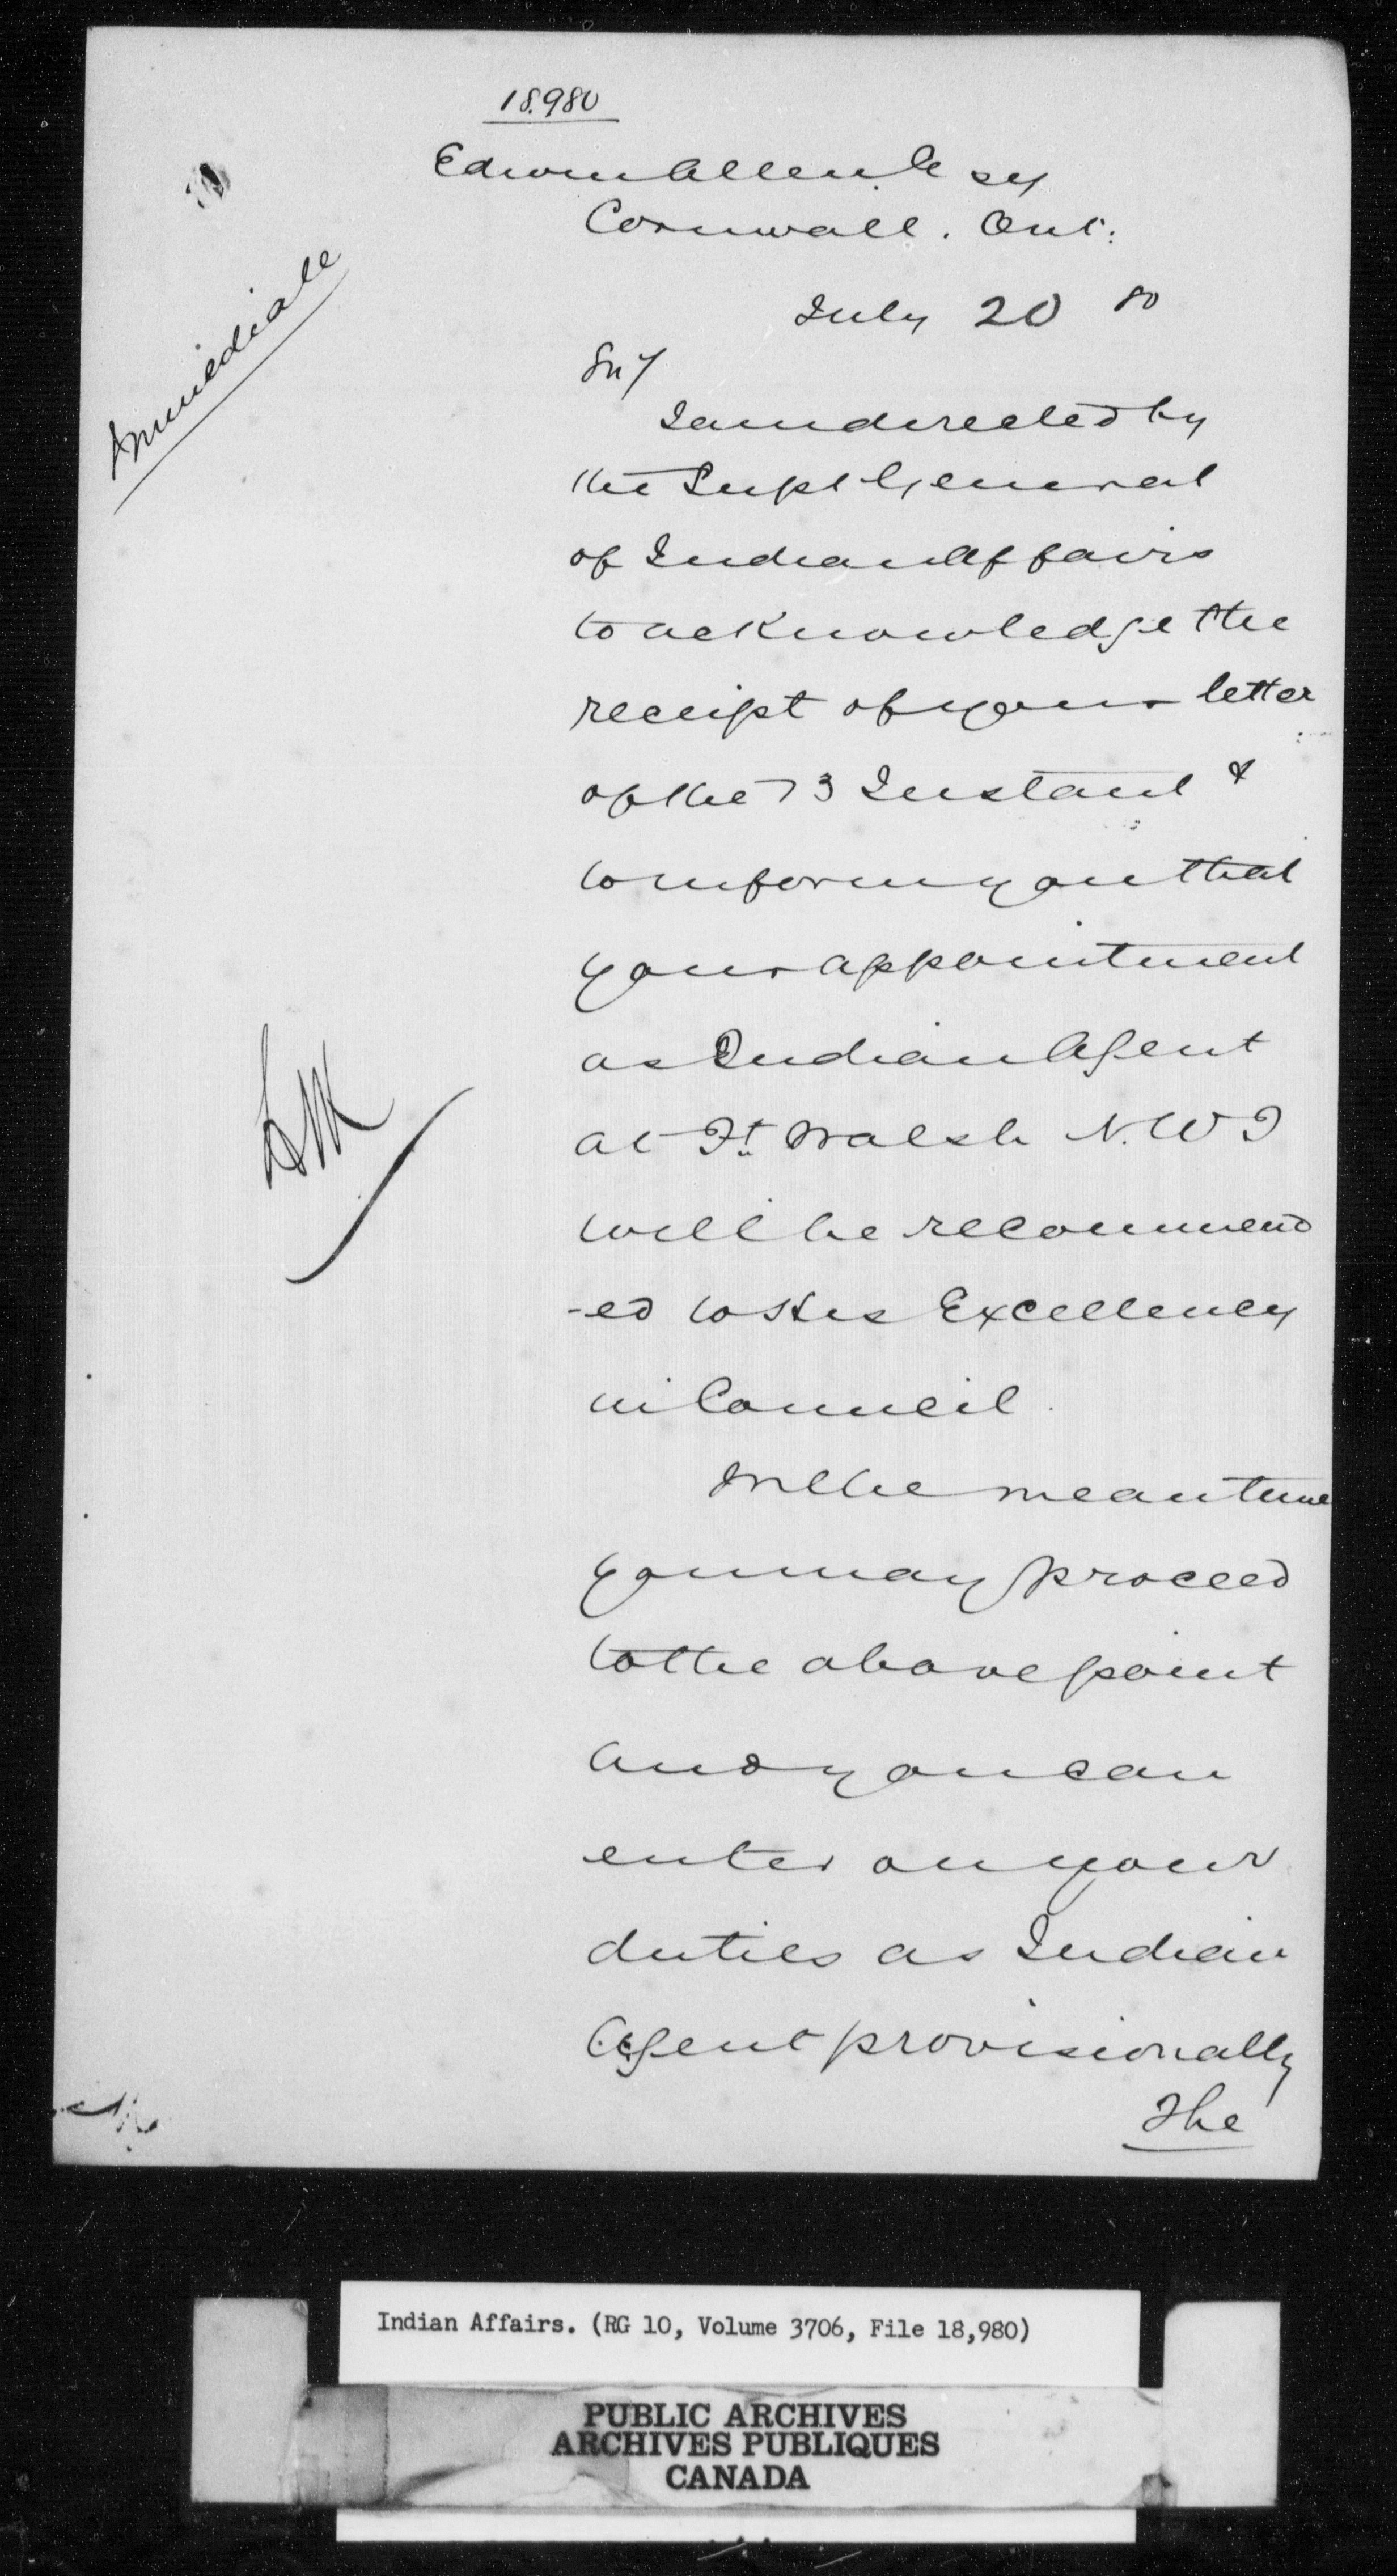 18.980
Edwin Allen Esq
Cornwall. Ont:
July 20 80
Immediate
Sir/
I am directed by
the Supt General
of Indian Affairs
to acknowledge the
receipt of your letter
of the 13 Instant &
to inform you that
your appointment
as Indian Agent
at Ft. Walsh N.W.T
will be recommend
-ed to His Excellency
in Council.
In the mean time
you may proceed
to the above point
and you can
enter on your
duties as Indian
Agent provisionally
The
Indian Affairs. (RG 10, Volume 3706, File 18,980)
PUBLIC ARCHIVES
ARCHIVES PUBLIQUES
CANADA